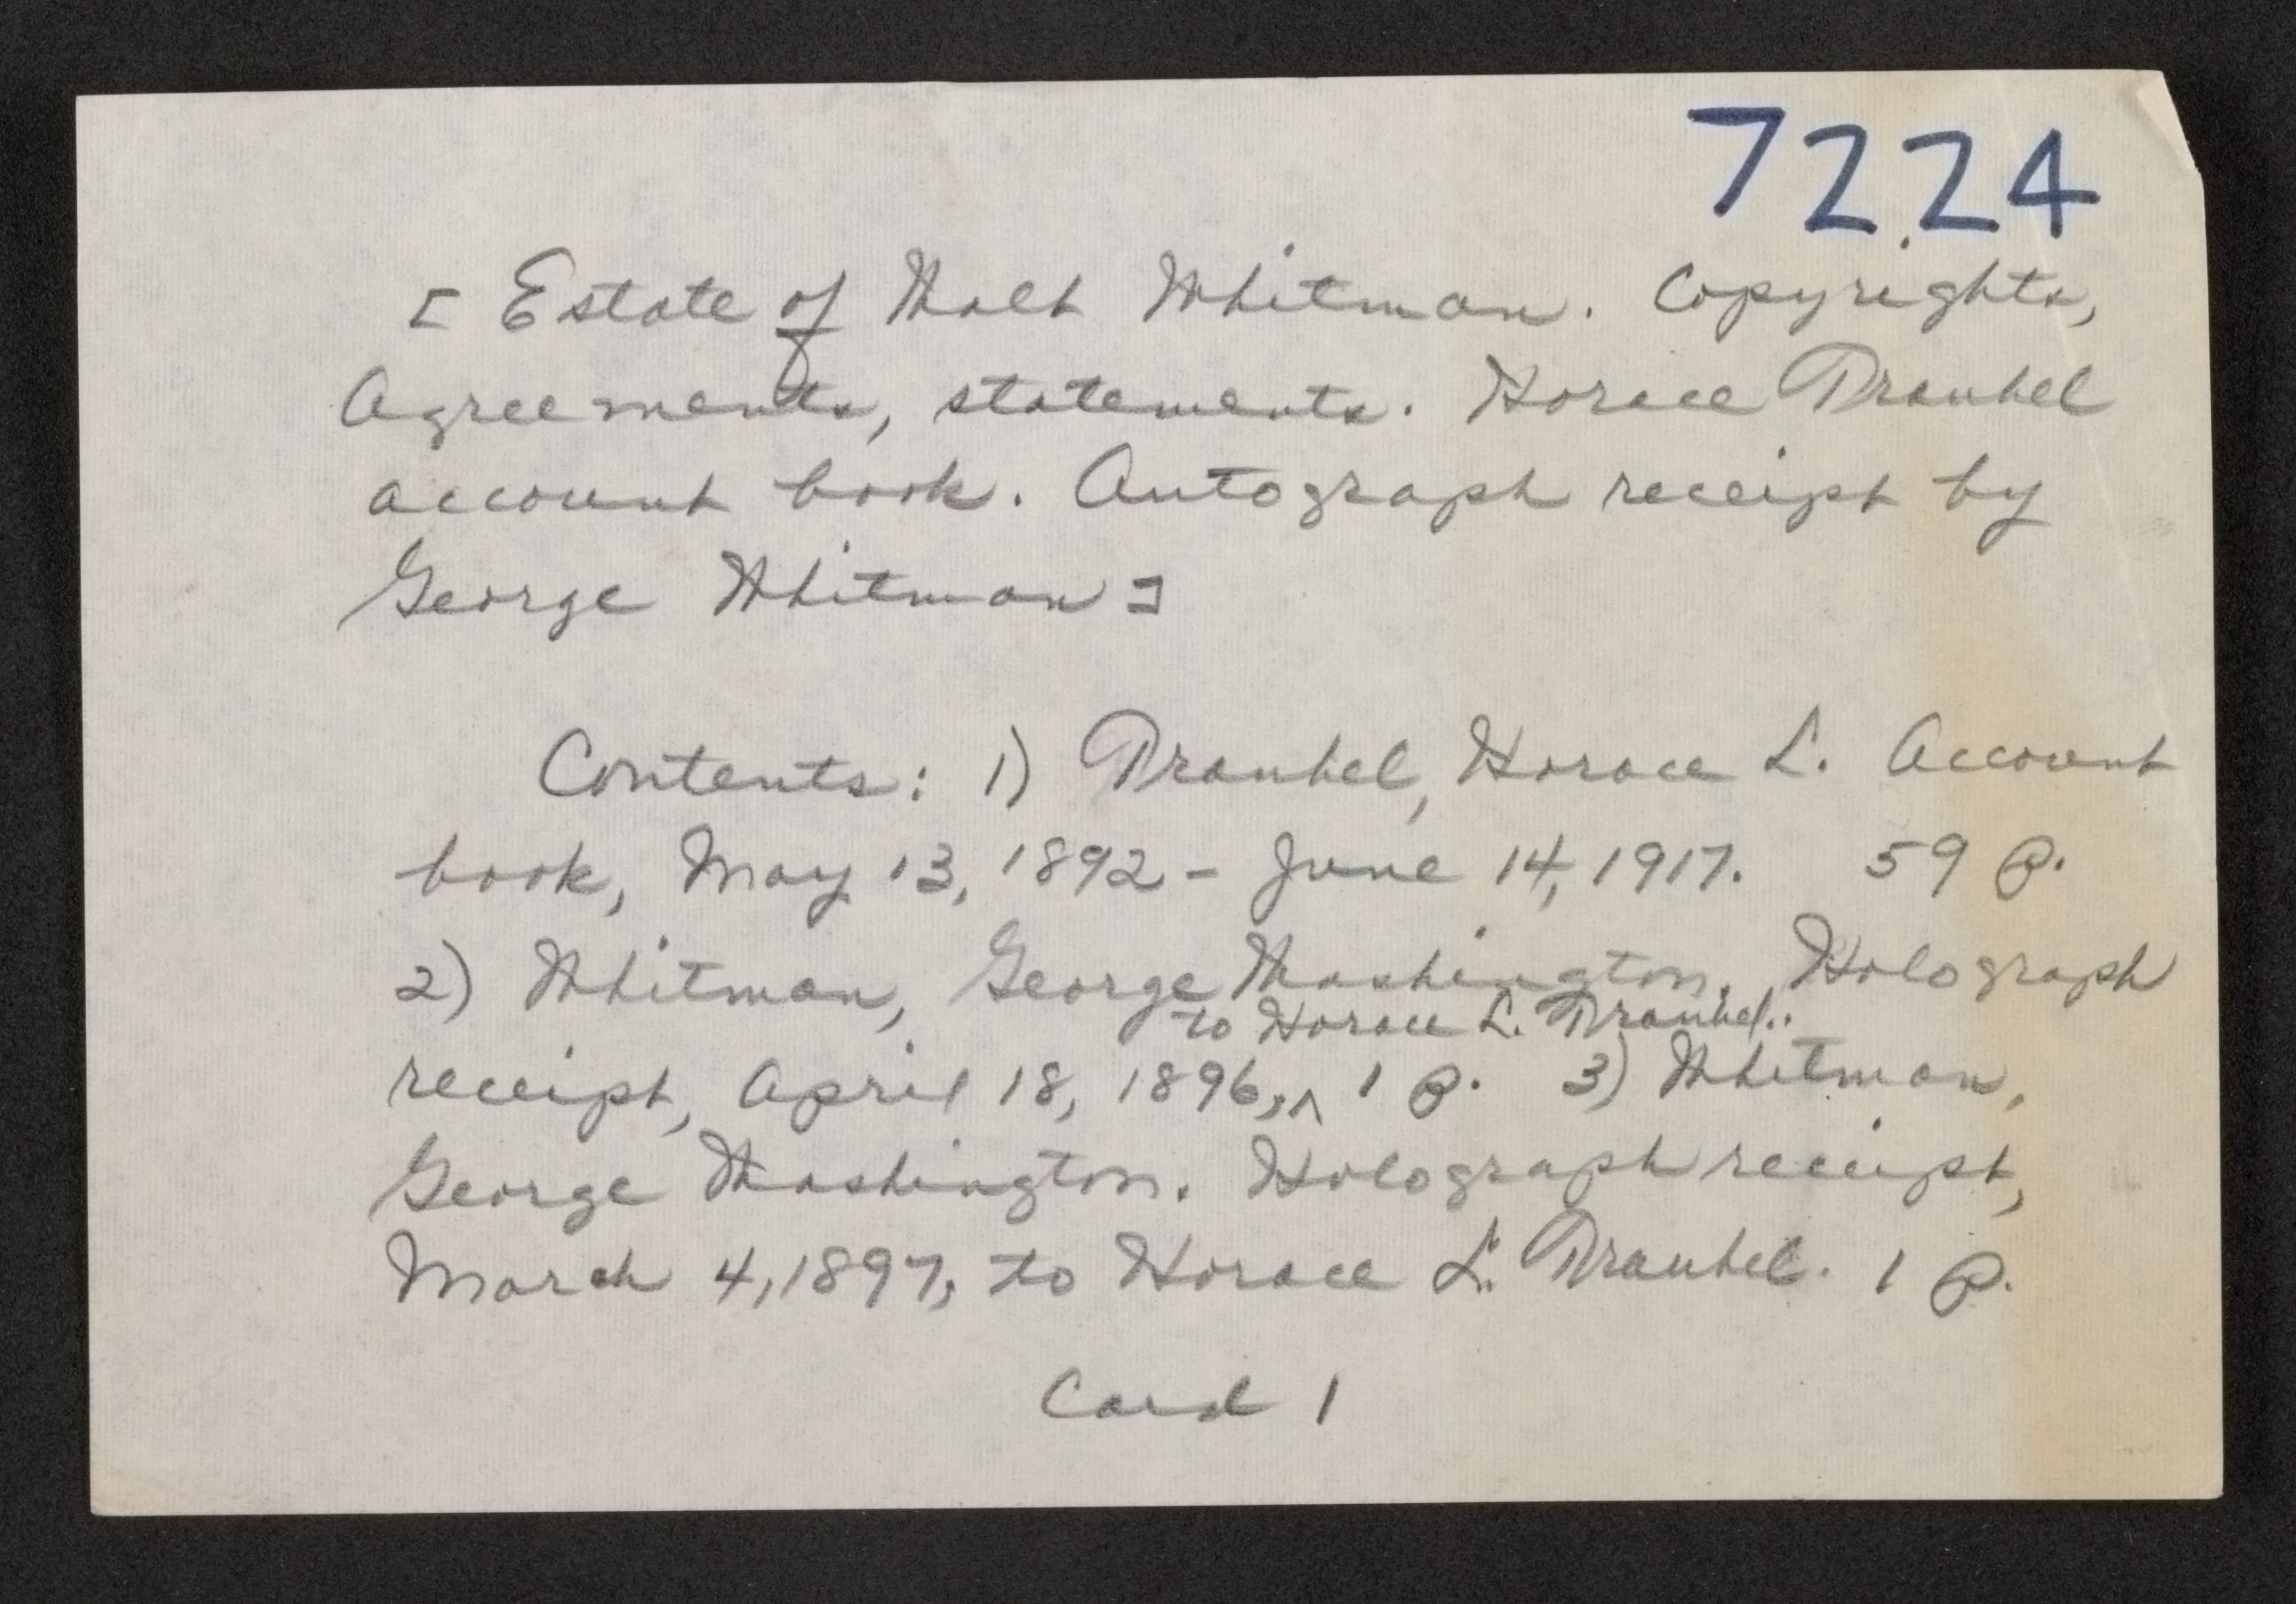 7224
[Estate of Walt Whitman. Copyrights,
Agreements, statements. Horace Traubel
account book. Autograph receipt by
George Whitman]
Contents: 1) Traubel, Horace L. Account
book, May 13, 1892 - June 14, 1917. 59 p.
2) Whitman, George Washington. Holograph
to Horace L. Traubel.
receipt, April 18, 1896, ^ 1 p. 3) Whitman,
George Washington. Holograph receipt,
March 4, 1897, to Horace L. Traubel. 1 p.
Card 1